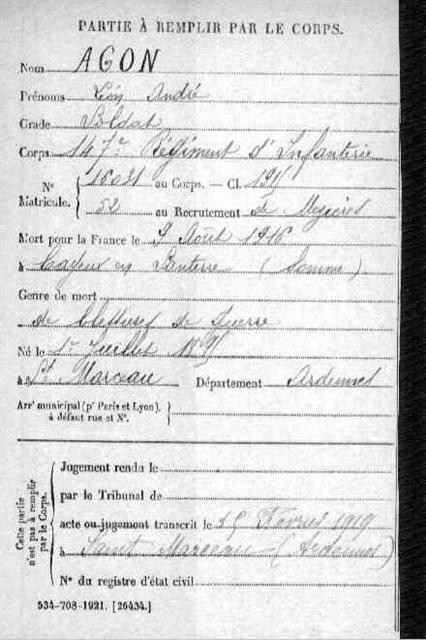 PARTIE À REMPLIR PAR LE CORPS.
Nom AGON
Prénoms Léon André
Grade Soldat
Corps 147e Régiment d'Infanterie
N° Matricule. { 10021 au Corps. — Cl. 1915
52 au Recrutement de Mézières
Mort pour la France le 9 Août 1916
à Cayeux en Santerre (Somme)
Genre de mort
de blessures de Guerre
Né le Juillet
à St Marceau Département Ardennes
Arrt municipal (pr Paris et Lyon), à défaut rue et N°. }
Cette partie n'est pas à remplir par le Corps.
Jugement rendu le
par le Tribunal de
acte ou jugement transcrit le 15 Février 1919
à Saint Marceau (Ardennes)
N° du registre d'état civil
534-708-1921. [26434.]